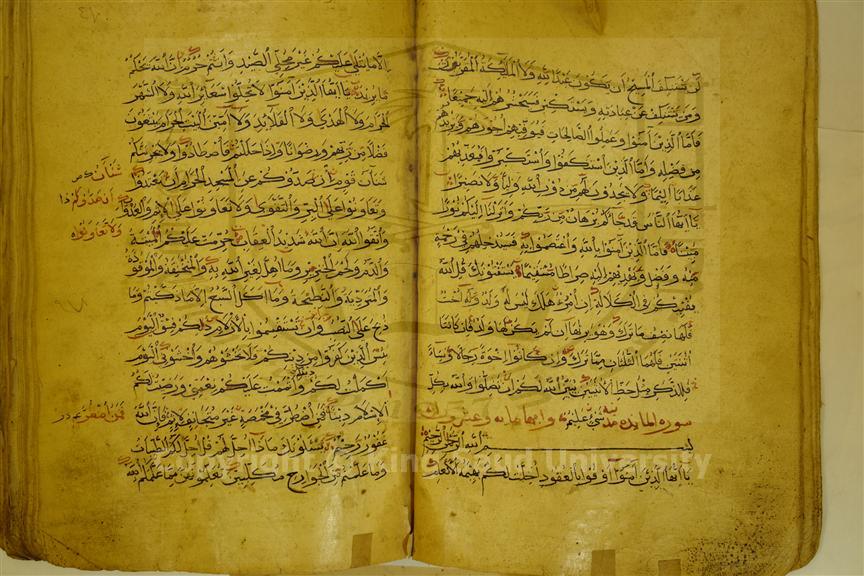 لن يستنكف المسيح ان يكون عبدا لله ولا الملئكة المقربون
ومن يستنكف عن عبادته ويستكبر فسيحشرهم اليه جميعا
فاما الذين امنوا وعملوا الصالحات فيوفيهم اجورهم ويزيدهم
من فضله واما الذين استنكفوا واستكبروا فيعذبهم
عذابا اليما ولا يجدون لهم من دون الله وليا ولا نصيرا
يا ايها الناس قد جاءكم برهان من ربكم وانزلنا اليكم نورا
مبينا فاما الذين امنوا بالله واعتصموا به فسيدخلهم في رحمة
منه وفضل ويهديهم اليه صراطا مستقيما يستفتونك قل الله
يفتيكم في الكلالة ان امرؤ هلك ليس له ولد وله اخت
فلها نصف ما ترك وهو يرثها ان لم يكن لها ولد فان كانتا
اثنتين فلهما الثلثان مما ترك وان كانوا اخوة رجالا ونساء
فللذكر مثل حظ الانثيين يبين الله لكم ان تضلوا والله بكل
شيء عليم سورة المائدة مائة وعشرون
بسم الله الرحمن الرحيم
يا ايها الذين امنوا اوفوا بالعقود احلت لكم بهيمة الانعام
الا ما يتلى عليكم غير محلي الصيد وانتم حرم ان الله يحكم
ما يريد يا ايها الذين امنوا لا تحلوا شعائر الله ولا الشهر
الحرام ولا الهدي ولا القلائد ولا امين البيت الحرام يبتغون
فضلا من ربهم ورضوانا واذا حللتم فاصطادوا ولا يجرمنكم
شنآن قوم ان صدوكم عن المسجد الحرام ان تعتدوا
وتعاونوا على البر والتقوى ولا تعاونوا على الاثم والعدوان
واتقوا الله ان الله شديد العقاب حرمت عليكم الميتة
والدم ولحم الخنزير وما اهل لغير الله به والمنخنقة والموقوذة
والمتردية والنطيحة وما اكل السبع الا ما ذكيتم وما
ذبح على النصب وان تستقسموا بالازلام ذلكم فسق اليوم
يئس الذين كفروا من دينكم فلا تخشوهم واخشون اليوم
اكملت لكم دينكم واتممت عليكم نعمتي ورضيت لكم
الاسلام دينا فمن اضطر في مخمصة غير متجانف لاثم فان الله
غفور رحيم يسئلونك ماذا احل لهم قل احل لكم الطيبات
وما علمتم من الجوارح مكلبين تعلمونهن مما علمكم الله
شنآن
ان صدوكم
ولا تعاونوا
فمن اضطر
Copyright © King Saud University